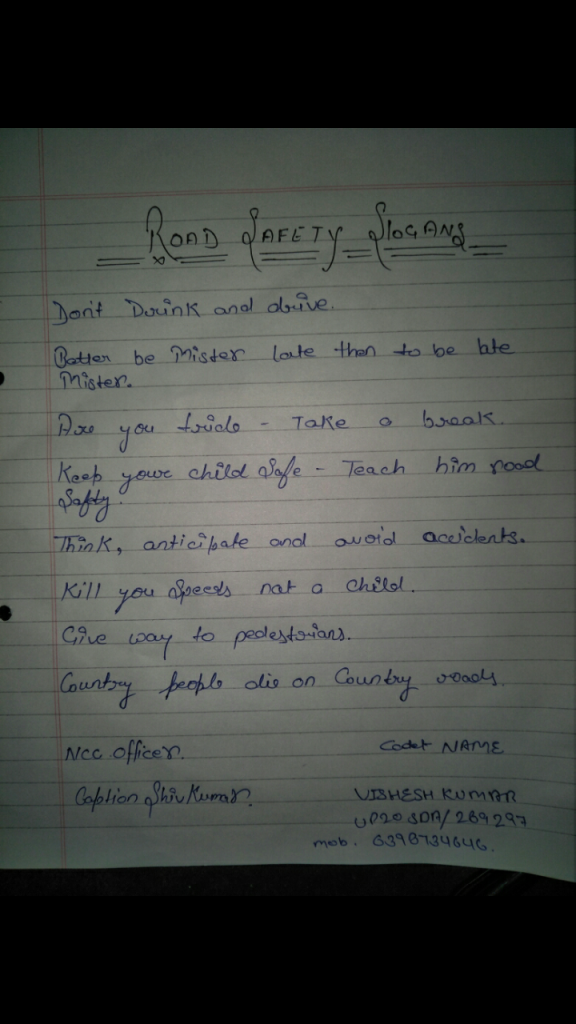 ROAD SAFETY SLOGANS
Don't Drink and drive.
Better be Mister late then to be late
Mister.
Are you tride - Take a break.
Keep your child Safe - Teach him road
Safty.
Think, anticipate and avoid accidents.
Kill you Speeds not a child.
Give way to pedestrians.
Country people die on Country roads.
NCC officer.
Cadet NAME
Caption Shiv Kumar.
VISHESH KUMAR
UP20SDA/269297
mob. 6396734646.